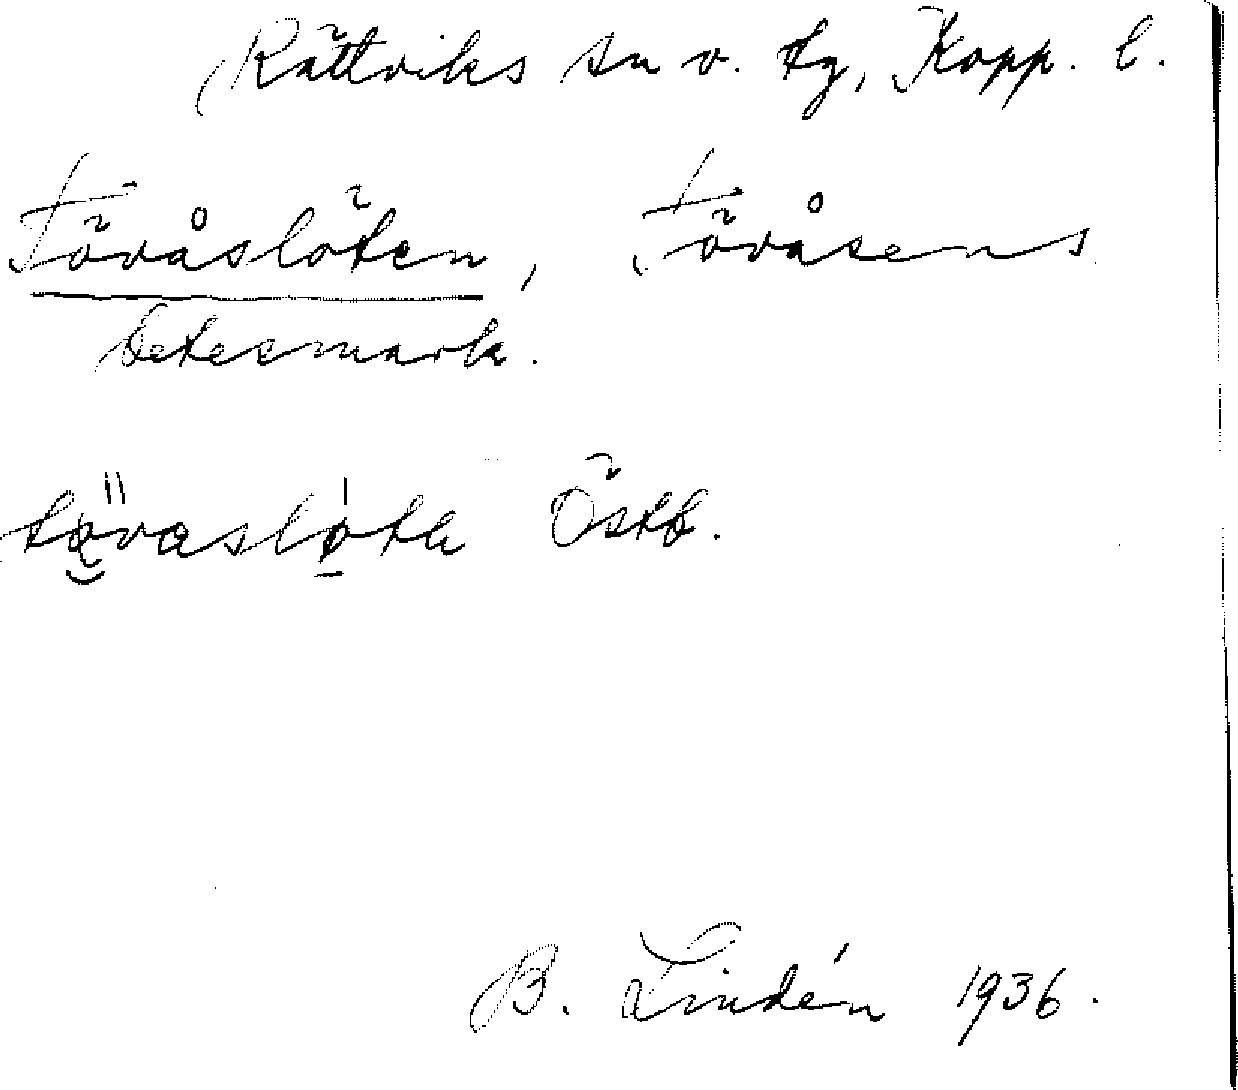 Rättviks sn v. tg, Kopp. l.
Tövåslöten, Tövåsens
betesmark.
Östb.
B. Lindén 1936.